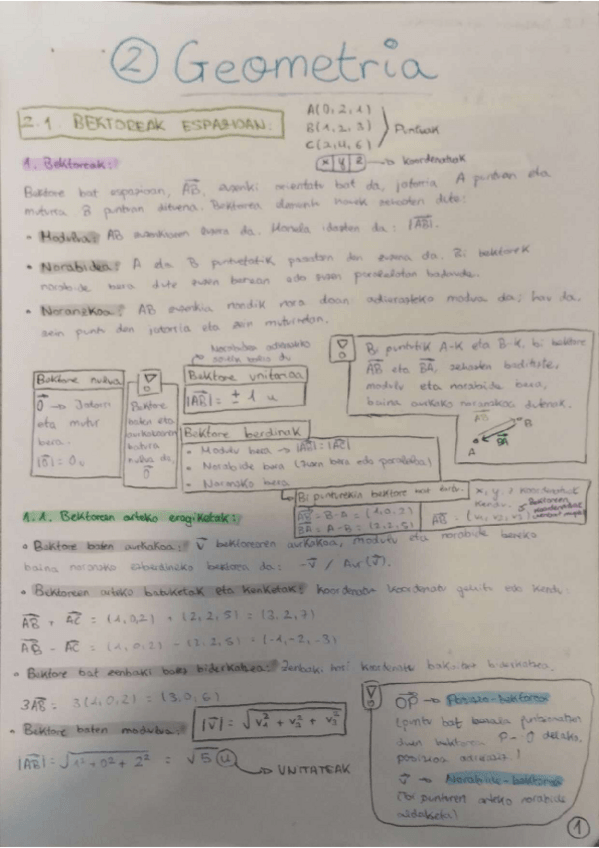 ② Geometria
2.1. BEKTOREAK ESPAZIOAN.
A(0,2,1)
B(1,2,3)
C(2,4,6)
Puntuak
x y z → koordenatuak
1. Bektoreak:
Bektore bat espazioan, AB, zuzenki orientatu bat da, jatorria A puntuan eta
muturra B puntuan dituena. Bektorea definitu hauek zehazten dute:
• Modulua: AB zuzenkiaren luzera da. Honela idazten da: |AB|.
• Norabidea: A eta B puntuetatik pasatzen den zuzena da. Bi bektorek
norabide bera dute zuzen berean edo zuzen paraleloetan badaude.
• Noranzkoa: AB zuzenkia nondik nora doan adierazteko modua da; hau da,
zein puntu den jatorria eta zein muturretan.
Norabidea adierazteko
Bektore nulua
0 → Jatorri
eta mutur
bera.
|0| = 0u
Bektore
baten eta
aurkakoaren
batura
nulua da,
0
Bektore unitarioa
|AB| = ± 1 u
Bektore berdinak
• Modulu bera → |AB| = |AC|
• Norabide bera (zuzen bera edo paraleloa)
• Noranzko bera
Bi puntutik A-K eta B-K, bi bektore
AB eta BA, zehazten dituzte,
modulu eta norabide bera,
baina aurkako noranzkoa dutenak.
AB
B
A
BA
Bi punturekin bektore bat
AB = B-A = (1,0,2)
BA = A-B =
x, y, z koordenatuak
kendu.
AB = (v₁, v₂, v₃)
1.1. Bektoreen arteko eragiketak:
• Bektore baten aurkakoa: v bektorearen aurkakoa, modulu eta norabide bereko
baina noranzko ezberdineko bektorea da: -v / Aur(v).
• Bektoreen arteko batuketak eta kenketak: koordenatuz koordenatu gehitu edo kendu.
AB + AC = (1,0,2) + (2,2,5) = (3,2,7)
AB - AC = (1,0,2) - (2,2,5) = (-1,-2,-3)
• Bektore bat zenbaki batez biderkatzea: Zenbaki hori koordenatu bakoitzaz biderkatzea.
3AB = 3(1,0,2) = (3,0,6)
• Bektore baten modulua: |v| = √v₁² + v₂² + v₃²
|AB| = √1² + 0² + 2² = √5 u → UNITATEAK
OP → Posizio-bektorea
(puntu bat bezala funtzionatzen
duen bektorea P-O delako,
posizioa adierazi.)
v → Norabide-bektorea
(bi punturen arteko norabide
1